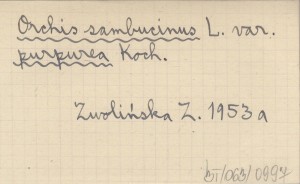 Orchis sambucinus L. var.
purpurea Koch.
Zwolińska Z. 1953 a
BT/063/0997